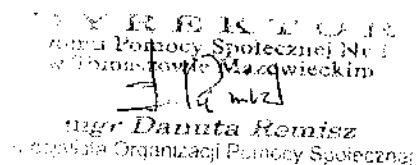 DYREKTOR
Domu Pomocy Społecznej Nr 1
w Tomaszowie Mazowieckim
mgr Danuta Remisz
Specjalista Organizacji Pomocy Społecznej